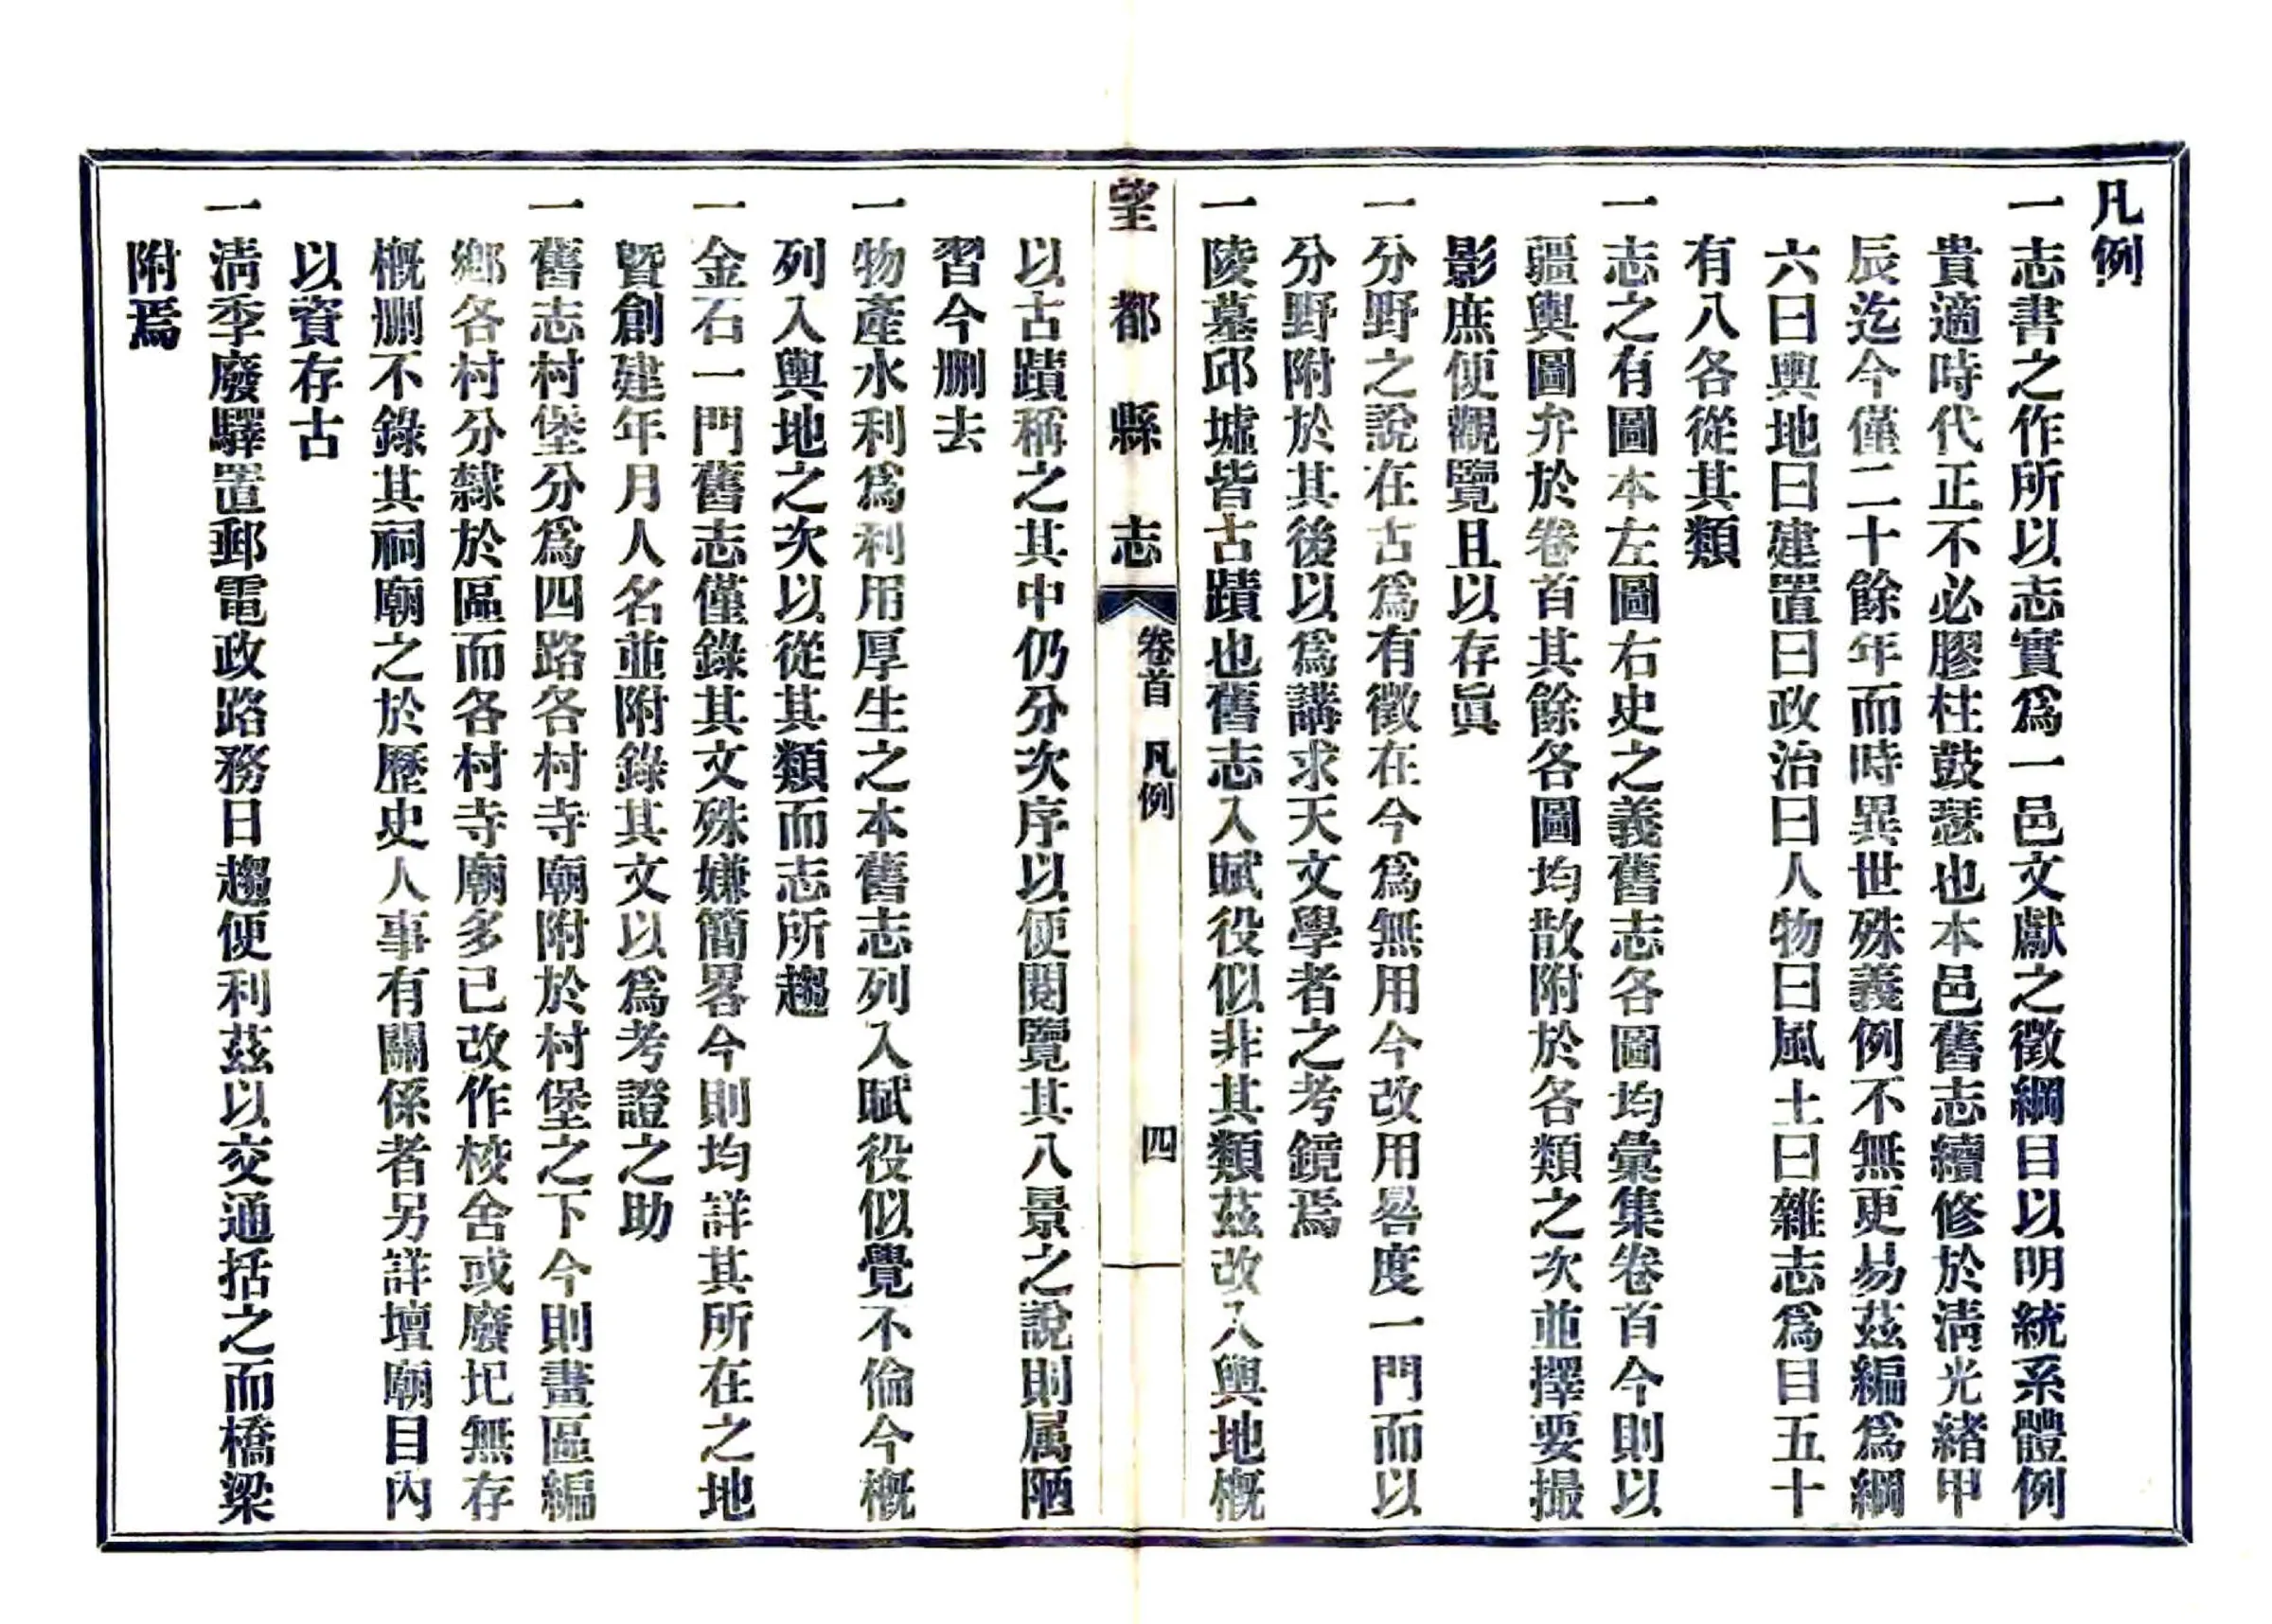 凡例
一志書之作所以志實爲一邑文獻之徵綱目以明統系體例
貴適時代正不必膠柱鼓瑟也本邑舊志續修於淸光緖甲
辰迄今僅二十餘年而時異世殊義例不無更易茲編爲綱
六曰輿地曰建置曰政治曰人物曰風土曰雜志爲目五十
有八各從其類
一志之有圖本左圖右史之義舊志各圖均彙集卷首今則以
疆輿圖弁於卷首其餘各圖均散附於各類之次並擇要撮
影庶便觀覽且以存眞
一分野之說在古爲有徵在今爲無用今改用晷度一門而以
分野附於其後以爲講求天文學者之考鏡焉
一陵墓邱墟皆古蹟也舊志入賦役似非其類茲改入輿地槪
望都縣志
卷首 凡例
四
以古蹟稱之其中仍分次序以便閱覽其八景之說則属陋
習今删去
一物產水利爲利用厚生之本舊志列入賦役似覺不倫今槪
列入輿地之次以從其類而志所趨
一金石一門舊志僅錄其文殊嫌簡畧今則均詳其所在之地
曁創建年月人名並附錄其文以爲考證之助
一舊志村堡分爲四路各村寺廟附於村堡之下今則畫區編
鄕各村分隸於區而各村寺廟多已改作校舍或廢圮無存
槪删不錄其祠廟之於歷史人事有關係者另詳壇廟目內
以資存古
一淸季廢驛置郵電政路務日趨便利茲以交通括之而橋梁
附焉